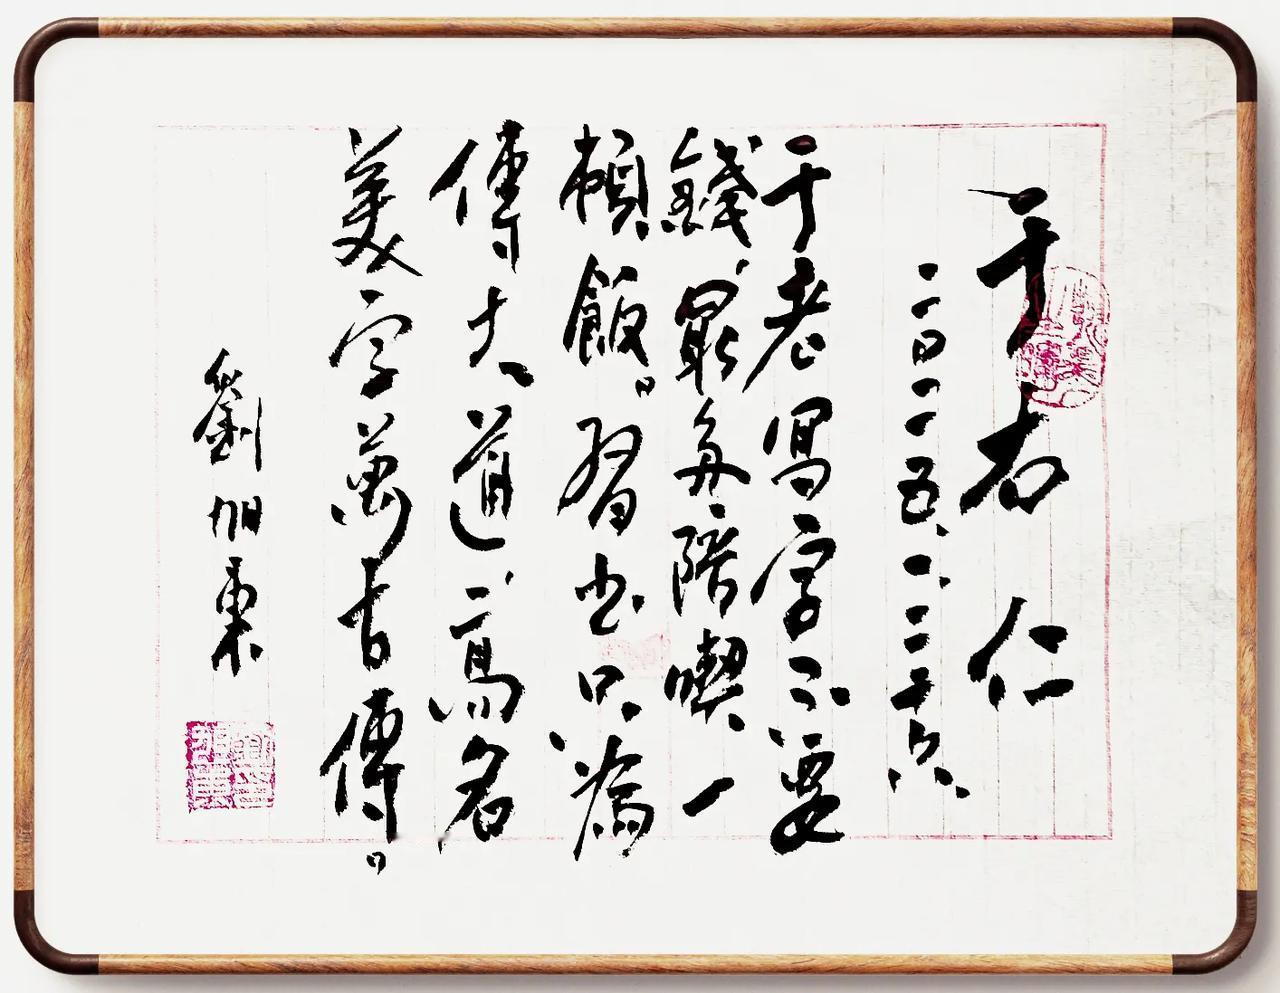 于右仁
二〇二五、一、二十六
于老寫字不要
錢,最多陪喫一
頓飯。習書只為
傳大道,高名
美字萬古傳。
劉旭東